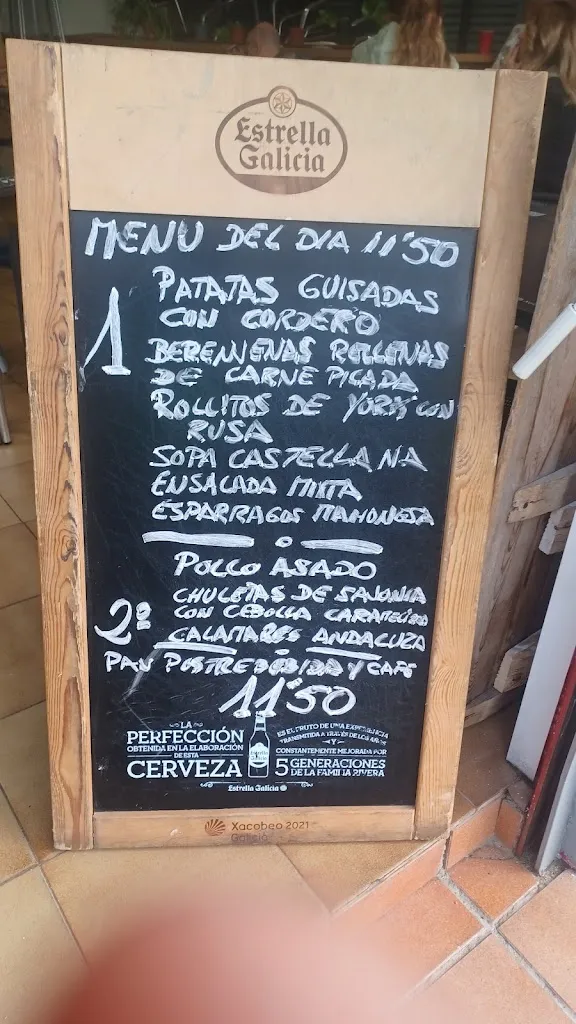 Estrella
Galicia
MENU DEL DIA 11'50
1
PATATAS GUISADAS
CON CORDERO
BERENJENAS RELLENAS
DE CARNE PICADA
ROLLITOS DE YORK CON
RUSA
SOPA CASTELLANA
ENSALADA MIXTA
ESPARRAGOS MAHONESA
POLLO ASADO
2º
CHULETAS DE SAJONIA
CON CEBOLLA CARAMELIZADA
CALAMARES ANDALUZA
PAN POSTRE BEBIDA Y CAFE
11'50
LA
PERFECCIÓN
OBTENIDA EN LA ELABORACIÓN
DE ESTA
CERVEZA
ES EL FRUTO DE UNA EXPERIENCIA
TRANSMITIDA A TRAVÉS DE LOS AÑOS
Y
CONSTANTEMENTE MEJORADA POR
5 GENERACIONES
DE LA FAMILIA RIVERA
Estrella Galicia
Xacobeo 2021
Galicia